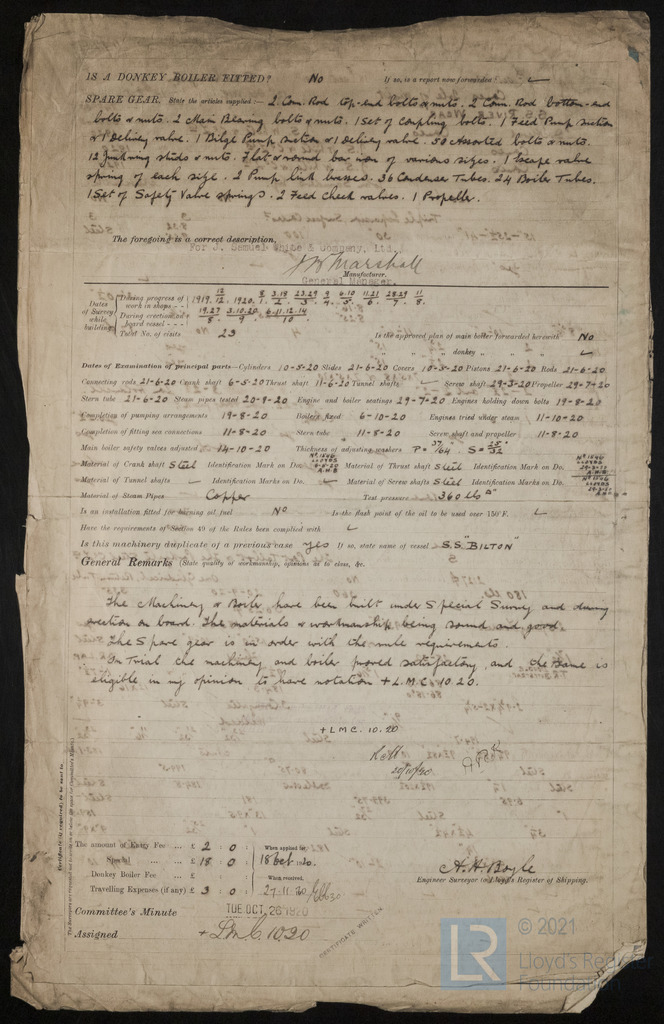 IS A DONKEY BOILER FITTED? No If so, is a report now forwarded? ✓
SPARE GEAR. State the articles supplied:— 2 Con. Rod top-end bolts & nuts. 2 Con. Rod bottom-end
bolts & nuts. 2 Main Bearing bolts & nuts. 1 Set of Coupling bolts. 1 Feed Pump suction
& 1 Delivery valve. 1 Bilge Pump suction & 1 Delivery valve. 50 Assorted bolts & nuts.
12 Junk ring studs & nuts. Flat & round bar iron of various sizes. 1 Escape valve
spring of each size. 2 Pump link brasses. 36 Condenser Tubes. 24 Boiler Tubes.
1 Set of Safety Valve springs. 2 Feed Check valves. 1 Propeller.
The foregoing is a correct description,
For J. Samuel White & Company, Ltd.
Marshall
Manufacturer.
General Manager.
Dates of Survey while building
During progress of work in shops - - 1919. 12/12. 1920. 8/1 3.18/2 23.29/3 9/4 6.10/5 11.21/6 28.29/7 11/8
During erection on board vessel - - - 19.27/8 3.10.20/9 6.11.12.14/10
Total No. of visits 23 Is the approved plan of main boiler forwarded herewith No
" " " donkey " " ✓
Dates of Examination of principal parts—Cylinders 10-5-20 Slides 21-6-20 Covers 10-5-20 Pistons 21-6-20 Rods 21-6-20
Connecting rods 21-6-20 Crank shaft 6-5-20 Thrust shaft 11-6-20 Tunnel shafts ✓ Screw shaft 29-3-20 Propeller 29-7-20
Stern tube 21-6-20 Steam pipes tested 20-8-20 Engine and boiler seatings 29-7-20 Engines holding down bolts 19-8-20
Completion of pumping arrangements 19-8-20 Boilers fixed 6-10-20 Engines tried under steam 11-10-20
Completion of fitting sea connections 11-8-20 Stern tube 11-8-20 Screw shaft and propeller 11-8-20
Main boiler safety valves adjusted 14-10-20 Thickness of adjusting washers P= 37/64 S= 25/32
Material of Crank shaft Steel Identification Mark on Do. Material of Thrust shaft Steel Identification Mark on Do.
Material of Tunnel shafts ✓ Identification Marks on Do. ✓ Material of Screw shafts Steel Identification Marks on Do.
Material of Steam Pipes Copper Test pressure 360 lbs □"
Is an installation fitted for burning oil fuel No Is the flash point of the oil to be used over 150°F. ✓
Have the requirements of Section 49 of the Rules been complied with ✓
Is this machinery duplicate of a previous case Yes If so, state name of vessel S.S "BILTON"
General Remarks (State quality of workmanship, opinions as to class, &c.
The Machinery & Boiler have been built under Special Survey and during
erection on board. The materials & workmanship being sound and good.
The Spare gear is in order with the rule requirements.
On Trial the machinery and boiler proved satisfactory, and the same is
eligible in my opinion to have notation + L.M.C. 10.20.
+ L M C. 10.20
20/10/20
The amount of Entry Fee ... £ 2 : 0 : When applied for,
Special ... ... £ 18 : 0 : 18 Oct 1920.
Donkey Boiler Fee ... £ : : When received,
Travelling Expenses (if any) £ 3 : 0 : 27.11.20
A. H. Boyle
Engineer Surveyor to Lloyd's Register of Shipping.
Committee's Minute TUE. OCT. 26 1920
Assigned + LMC. 10.20
CERTIFICATE WRITTEN
LR
© 2021
Lloyd's Register
Foundation